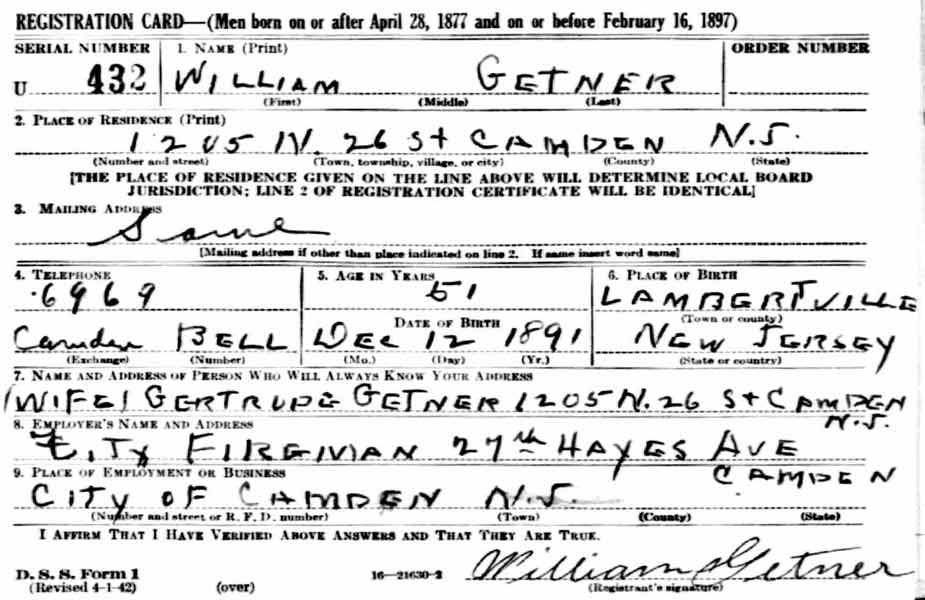 REGISTRATION CARD—(Men born on or after April 28, 1877 and on or before February 16, 1897)
SERIAL NUMBER 1. NAME (Print) ORDER NUMBER
U 432 WILLIAM GETNER
(First) (Middle) (Last)
2. PLACE OF RESIDENCE (Print)
1205 N. 26 St CAMDEN N.J.
(Number and street) (Town, township, village, or city) (County) (State)
[THE PLACE OF RESIDENCE GIVEN ON THE LINE ABOVE WILL DETERMINE LOCAL BOARD
JURISDICTION; LINE 2 OF REGISTRATION CERTIFICATE WILL BE IDENTICAL]
3. MAILING ADDRESS
Same
[Mailing address if other than place indicated on line 2. If same insert word same]
4. TELEPHONE 5. AGE IN YEARS 6. PLACE OF BIRTH
6969 51 LAMBERTVILLE
DATE OF BIRTH (Town or county)
Camden BELL DEC 12 1891 NEW JERSEY
(Exchange) (Number) (Mo.) (Day) (Yr.) (State or country)
7. NAME AND ADDRESS OF PERSON WHO WILL ALWAYS KNOW YOUR ADDRESS
(WIFE) GERTRUDE GETNER 1205 N. 26 St CAMDEN
N.J.
8. EMPLOYER'S NAME AND ADDRESS
CITY FIREMAN 27th HAYES AVE
CAMDEN
9. PLACE OF EMPLOYMENT OR BUSINESS
CITY OF CAMDEN N.J.
(Number and street or R. F. D. number) (Town) (County) (State)
I AFFIRM THAT I HAVE VERIFIED ABOVE ANSWERS AND THAT THEY ARE TRUE.
William Getner
D. S. S. Form 1 16—21630-2
(Revised 4-1-42) (over) (Registrant's signature)